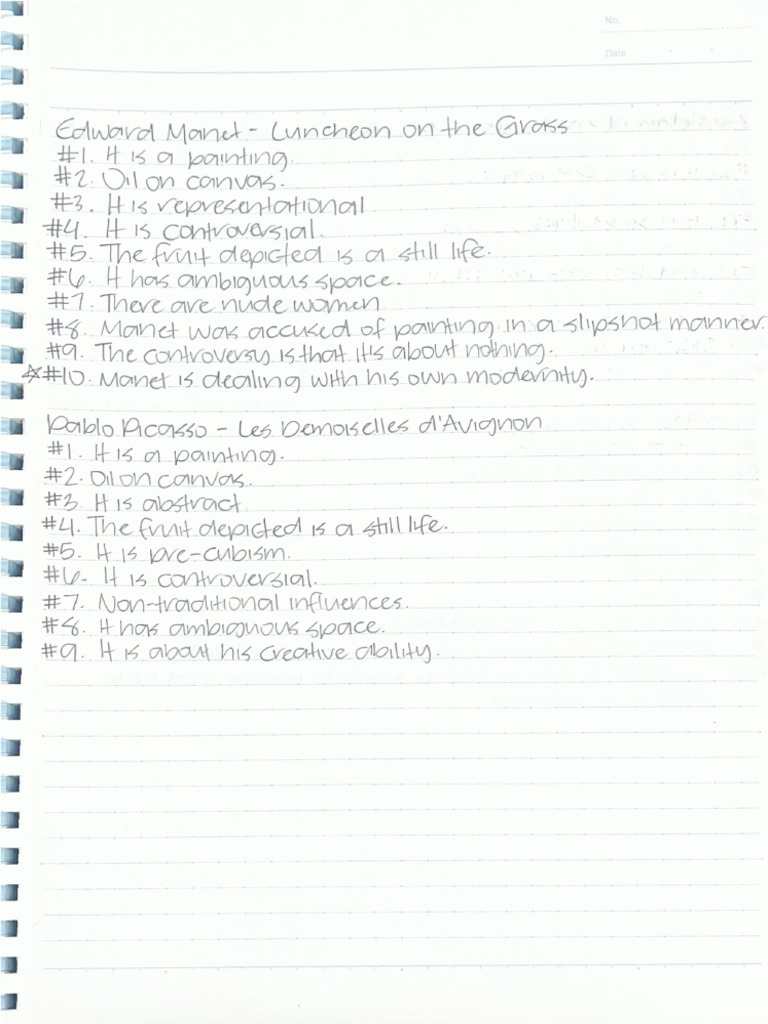 No.
Date
Edward Manet - Luncheon on the Grass
#1. It is a painting.
#2. Oil on canvas.
#3. It is representational
#4. It is controversial.
#5. The fruit depicted is a still life.
#6. It has ambiguous space.
#7. There are nude women
#8. Manet was accused of painting in a slipshot manner.
#9. The controversy is that it's about nothing.
☆#10. Manet is dealing with his own modernity.
Pablo Picasso - Les Demoiselles d'Avignon
#1. It is a painting.
#2. Oil on canvas.
#3. It is abstract
#4. The fruit depicted is a still life.
#5. It is pre-cubism.
#6. It is controversial.
#7. Non-traditional influences.
#8. It has ambiguous space.
#9. It is about his creative ability.